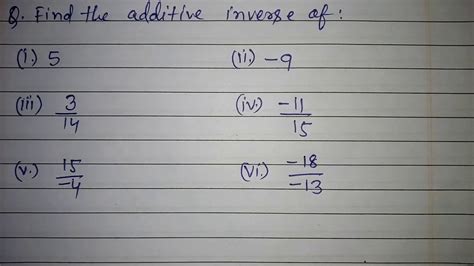 Q. Find the additive inverse of :
(i.) 5 (ii.) -9
(iii) 3/14 (iv.) -11/15
(v.) 15/-4 (vi.) -18/-13